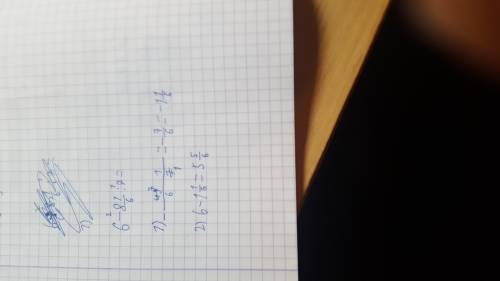 6 - 8 1/6 : 7 =
1) - 49/6 · 1/7 = - 7/6 = - 1 1/6
2) 6 - 1 1/6 = 5 5/6